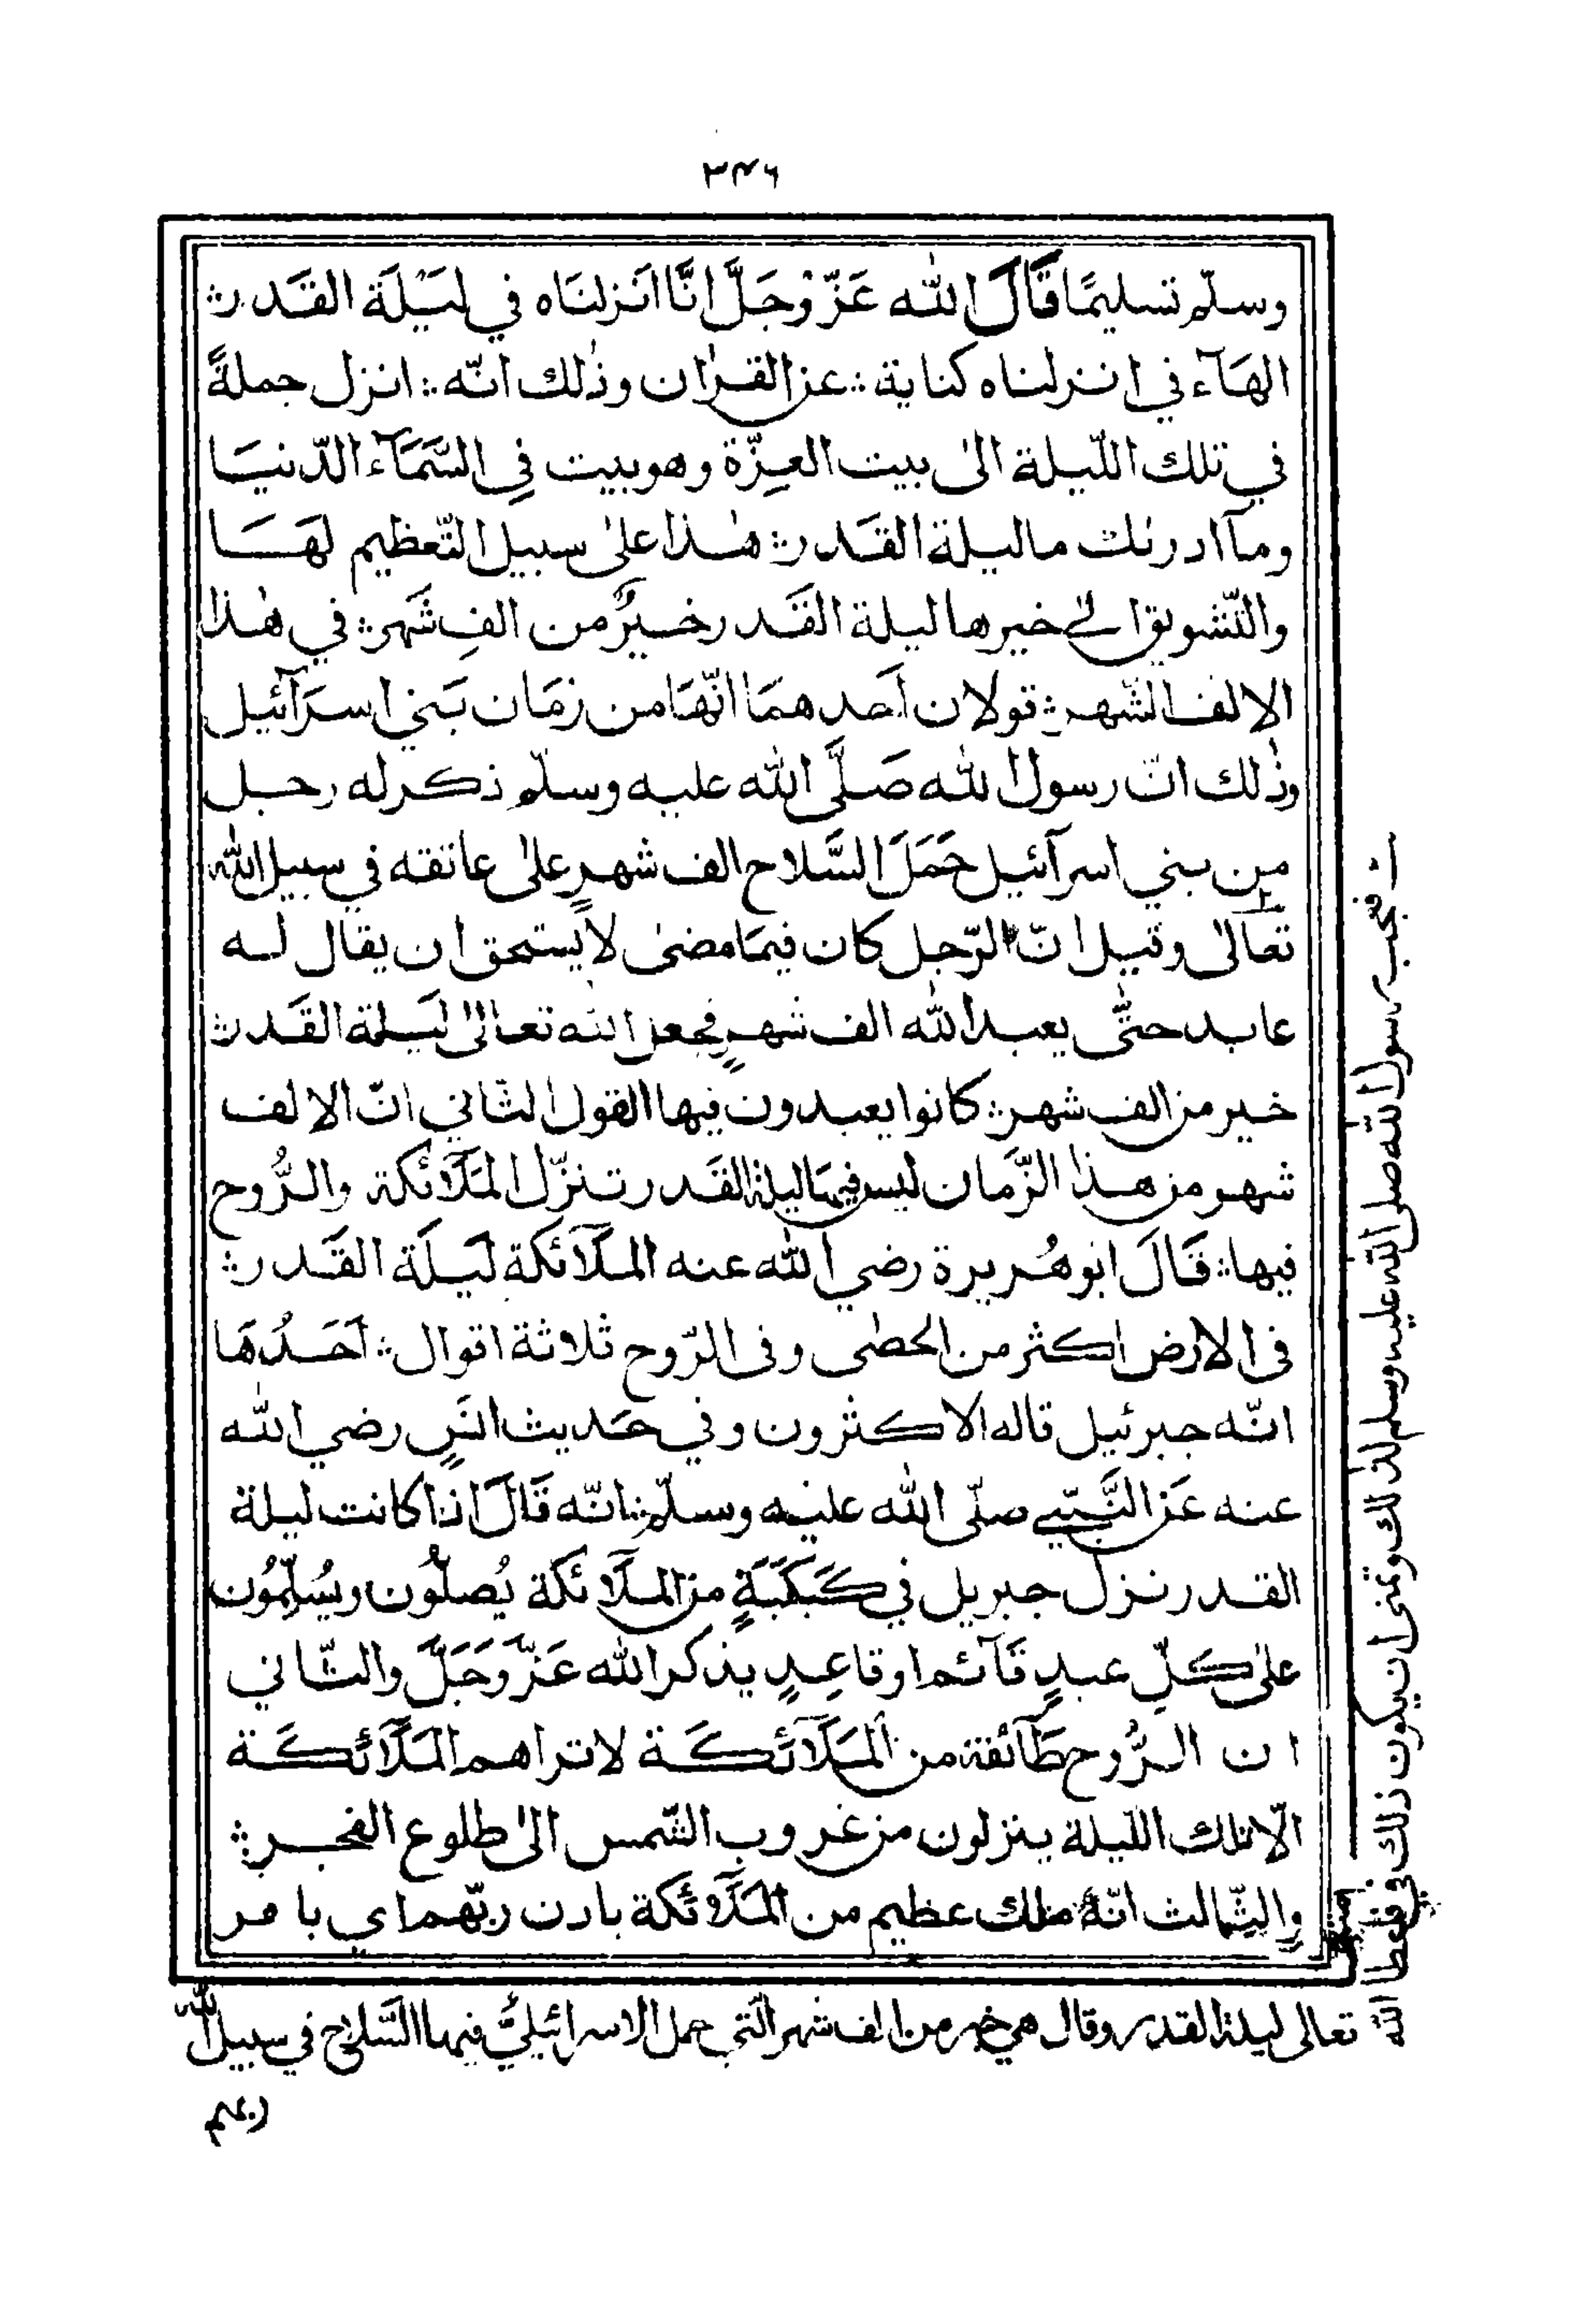 ٣٤٦
وسلّم تسليمًا قَالَ الله عَزّ وْجَلَّ انَّا انَزلنَاه في ليَـْلَة القَدر ؞
الهَآء في انزلناه كناية ؞ عن القراٰن وذٰلك انّه ؞ انزل جملةً
في تلك اللّيلة الىٰ بيت العِزّة وهو بيت فِي السَّمَآء الدّنيَا
ومآ ادرىٰك ما ليلة القَدر ؞ هٰذا علىٰ سبيل التّعظيم لهَا
والتّشويق الىٰ خبرها ليلة القَدر خيرٌ من الفِ شَهر ؞ في هٰذا
الالف الشّهر ؞ قولان اَحدهمَا انّهَا من زمَان بَني اسرَآئيل
وذٰلك انّ رسول الله صَلَّى الله عليه وسلّم ذكر له رجل
من بني اسرآئيل حَمَلَ السَّلاح الف شهرٍ علىٰ عاتقه في سبيل الله
تعالىٰ وقيل انّ الرّجل كان فيمَا مضىٰ لا يستحق ان يقال له
عابد حتّٰى يعبد الله الف شهرٍ فجعل الله تعالىٰ ليَلة القَدر ؞
خير من الف شهر ؞ كانوا يعبدون فيها القول الثّاني انّ الالف
شهر من هذا الزّمان ليس فيهَا ليلة القَدر تنزّل المَلَآئكة والرُّوح
فيها ؞ قَالَ ابو هُريرة رضي الله عنه الملَآئكة ليَلَة القَدر ؞
فى الارض اكثر من الحصٰى وفى الرّوح ثلاثة اقوال ؞ اَحَدُهَا
انّه جبرئيل قاله الاكثرون وفي حَديث انَسٍ رضي الله
عنه عَن النَّبيّ صلّى الله عليه وسلّم ؞ انّه قَالَ اذا كانت ليلة
القدر نزل جبريل في كَبكَبَةٍ من الملَآئكة يُصلُّون ويُسُلِّمُون
علىٰ كلِّ عبدٍ قَآئم او قاعِدٍ يذكر الله عَزّ وَجَلَّ والثّاني
ان الرُّوح طَآئفة من المَلَآئكَة لا تراهم المَلَآئكَة
الّا تلك اللّيلة ينزلون من غروب الشّمس الىٰ طلوع الفجر ؞
والثّالث انّهٗ ملك عظيم من المَلَآئكة باذن ربّهم اي بامر
فعجب رسول الله صلى الله عليه وسلم لذلك وتمنى ان يكون ذلك في امته فاعطاه الله
تعالى ليلة القدر وقال هي خير من الف شهر الّتي حمل الاسرائيليُّ فيها السَّلاح في سبيل الله
ربهم